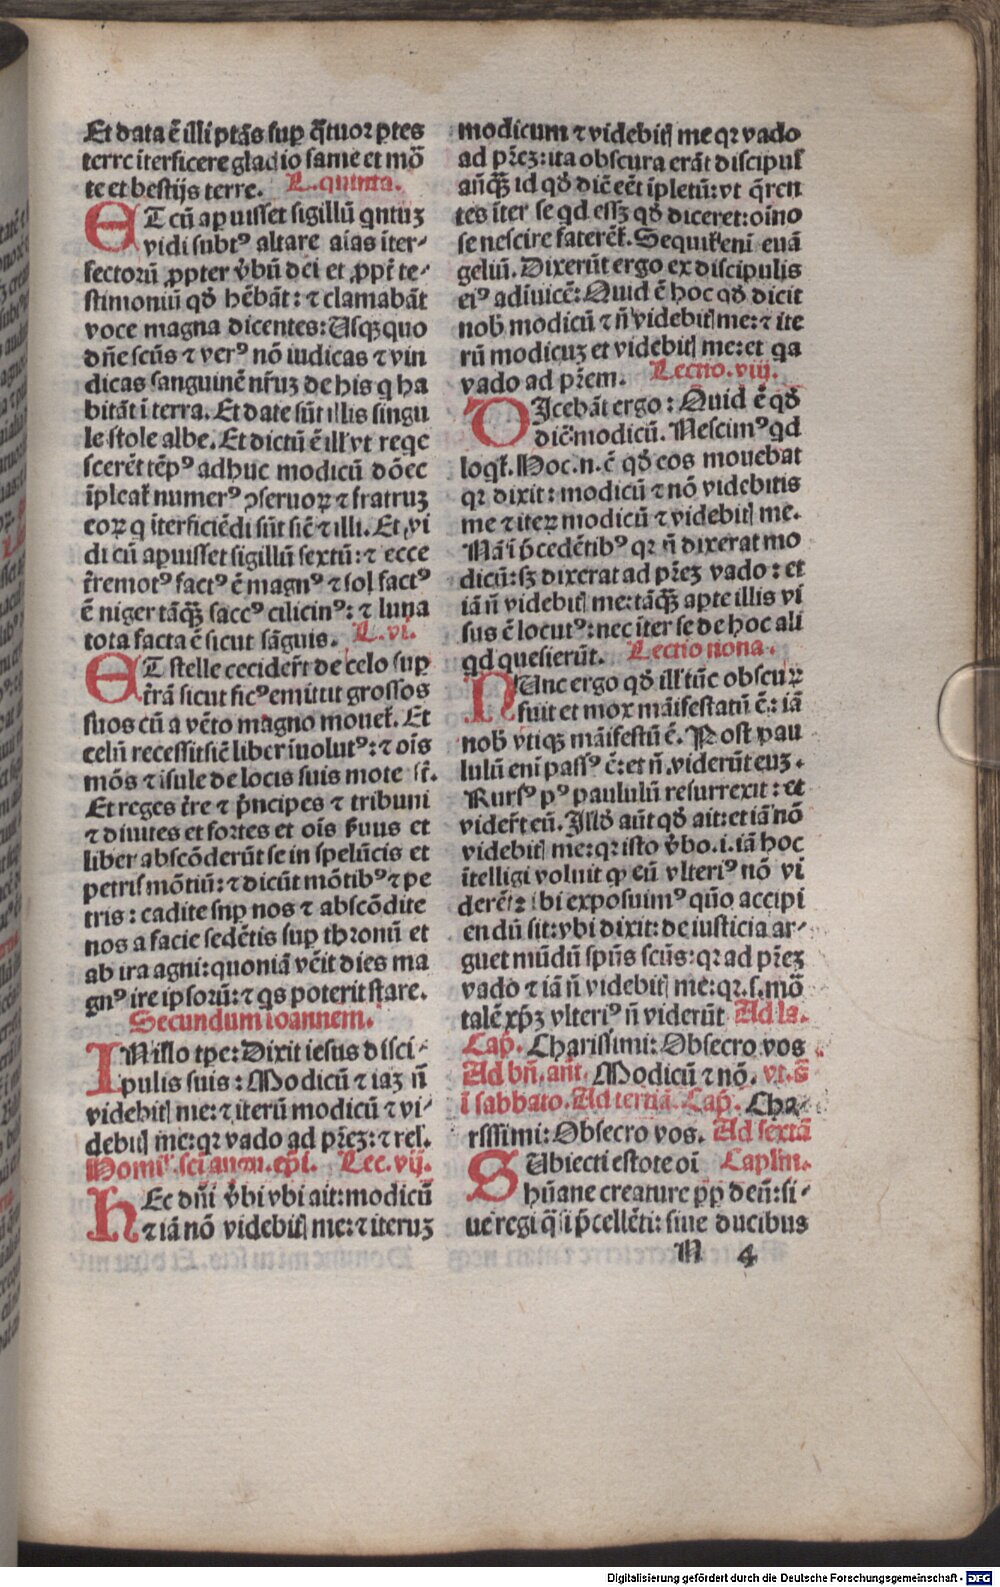 Et data ē illi ptās sup q̄tuor ptes
terre īterficere gladio fame et mō
te et bestijs terre. L. quinta.
ET cū apuisset sigillū qntuʒ
vidi subtꝰ altare aīas īter-
fectorū ꝓpter v̄bū dei et ꝓpt̄ te-
stimoniū qđ hēbāt: ⁊ clamabāt
voce magna dicentes: Usqꝫquo
dn̄e scūs ⁊ verꝰ nō iudicas ⁊ vin
dicas sanguinē nr̄uʒ de his q ha
bitāt ī terra. Et date sūt illis singu
le stole albe. Et dictū ē ill' vt reqe
scerēt tēpꝰ adhuc modicū dōec
īpleat̄ numerꝰ ꝯseruoꝝ ⁊ fratruʒ
eoꝝ q īterficiēdi sūt siē ⁊ illi. Et vi
di cū apuisset sigillū sextū: ⁊ ecce
t̄remotꝰ factꝰ ē magnꝰ ⁊ sol factꝰ
ē niger tāqꝫ saccꝰ cilicinꝰ: ⁊ luna
tota facta ē sicut sāguis. L. vi.
ET stelle cecider̄t de celo sup
t̄rā sicut ficꝰ emittit grossos
suos cū a vēto magno mouet̄. Et
celū recessit siē liber īuolutꝰ: ⁊ oīs
mōs ⁊ īsule de locis suis mote st̄.
Et reges t̄re ⁊ p̄ncipes ⁊ tribuni
⁊ diuites et fortes et oīs ẜuus et
liber abscōderūt se in spelūcis et
petris mōtiū: ⁊ dicūt mōtibꝰ ⁊ pe
tris: cadite sup nos ⁊ abscōdite
nos a facie sedētis sup thronū et
ab ira agni: quoniā vēit dies ma
gnꝰ ire ipsorū: ⁊ qs poterit stare.
Secundum ioannem.
IN illo tpe: Dixit iesus disci-
pulis suis: Modicū ⁊ iaʒ n̄
videbitꝭ me: ⁊ iterū modicū ⁊ vi-
debitꝭ me: qꝛ vado ad pr̄eʒ: ⁊ rel'.
Homil' sci augu. epi. Lec. vij.
HEc dn̄i v̄bi vbi ait: modicū
⁊ iā nō videbitꝭ me: ⁊ iteruʒ
modicum ⁊ videbitꝭ me qꝛ vado
ad pr̄eʒ: ita obscura erāt discipul'
an̄qꝫ id qđ diē eēt īpletū: vt q̄ren
tes īter se qd essʒ qđ diceret: oīno
se nescire faterēt̄. Sequit̄ eni euā
geliū. Dixerūt ergo ex discipulis
eiꝰ adīuicē: Quid ē hoc qđ dicit
nob' modicū ⁊ n̄ videbitꝭ me: ⁊ ite
rū modicuʒ et videbitꝭ me: et qa
vado ad pr̄em. Lectio. viij.
DIcebāt ergo: Quid ē qđ
diē: modicū. Nescimꝰ qd
loqt̄. Hoc .n. ē qđ eos mouebat
qꝛ dixit: modicū ⁊ nō videbitis
me ⁊ iteꝝ modicū ⁊ videbitꝭ me.
Nā ī p̄cedētibꝰ qꝛ n̄ dixerat mo
dicū: sʒ dixerat ad pr̄eʒ vado: et
iā n̄ videbitꝭ me: tāqꝫ apte illis vi
sus ē locutꝰ: nec īter se de hoc ali
qd quesierūt. Lectio nona.
NUnc ergo qđ ill' tūc obscuꝝ
fuit et mox māifestatū ē: iā
nob' vtiqꝫ māifestū ē. Post pau
lulū eni passꝰ ē: et n̄ viderūt euʒ.
Rursꝰ pꝰ paululū resurrexit: et
vider̄t eū. Illđ aūt qđ ait: et iā nō
videbitꝭ me: qꝛ isto v̄bo .i. iā hoc
ītelligi voluit qꝙ eū vlteriꝰ nō vi
derēt: ibi exposuimꝰ quō accipi
endū sit: vbi dixit: de iusticia ar-
guet mūdū spūs scūs: qꝛ ad pr̄eʒ
vado ⁊ iā n̄ videbitꝭ me: qꝛ .s. mō
talē xp̄ʒ vlteriꝰ n̄ viderūt Ad la.
Cap̄. Charissimi: Obsecro vos
Ad bn̄. an̄t. Modicū ⁊ nō. vt. s̄
ī sabbato. Ad tertiā. Cap̄. Cha-
rissimi: Obsecro vos. Ad sextā
SUbiecti estote oī Caplm.
hūane creature ꝓp deū: si-
ue regi q̄si p̄cellēti: siue ducibus
N 4
Digitalisierung gefördert durch die Deutsche Forschungsgemeinschaft - DFG